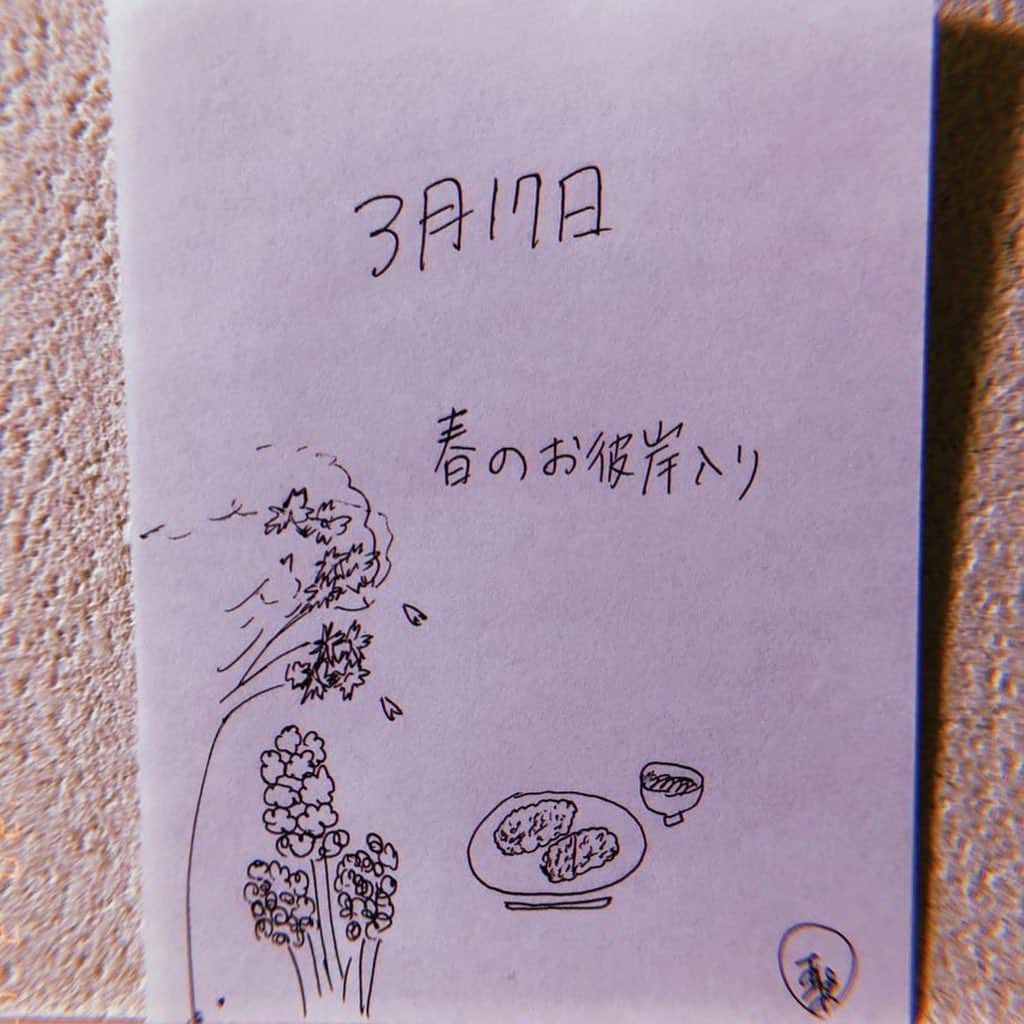 3月17日
春のお彼岸入り